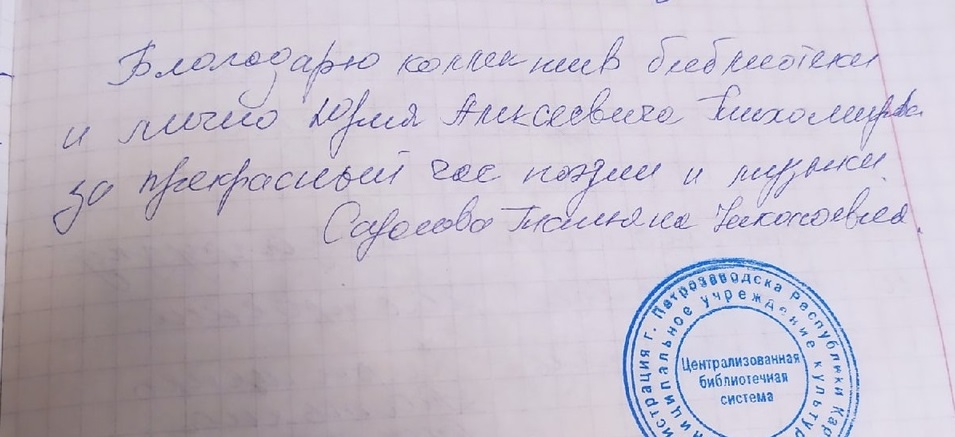 Благодарю коллектив библиотеки
и лично Юлия Алексеевича Тихомирова
за прекрасный час поэзии и музыки.
Татьяна Николаевна.
г. Петрозаводска Республики
учреждение
Централизованная
библиотечная
система